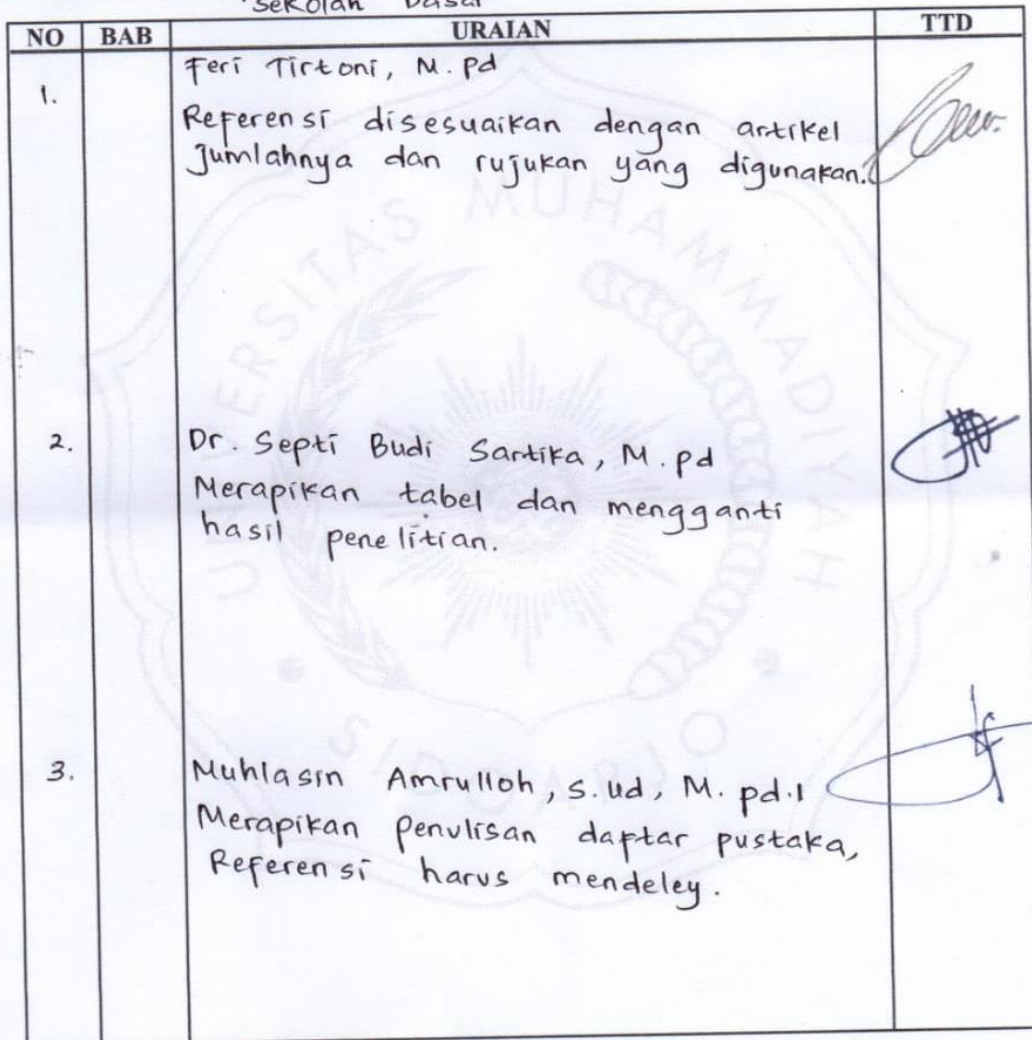 Sekolah Dasar
NO BAB URAIAN TTD
1. Feri Tirtoni, M.Pd
Referensi disesuaikan dengan artikel
Jumlahnya dan rujukan yang digunakan.
2. Dr. Septi Budi Sartika, M.pd
Merapikan tabel dan mengganti
hasil penelitian.
3. Muhlasin Amrulloh, S.ud, M.pd.I
Merapikan penulisan daftar pustaka,
Referensi harus mendeley.
UNIVERSITAS MUHAMMADIYAH
SIDOARJO